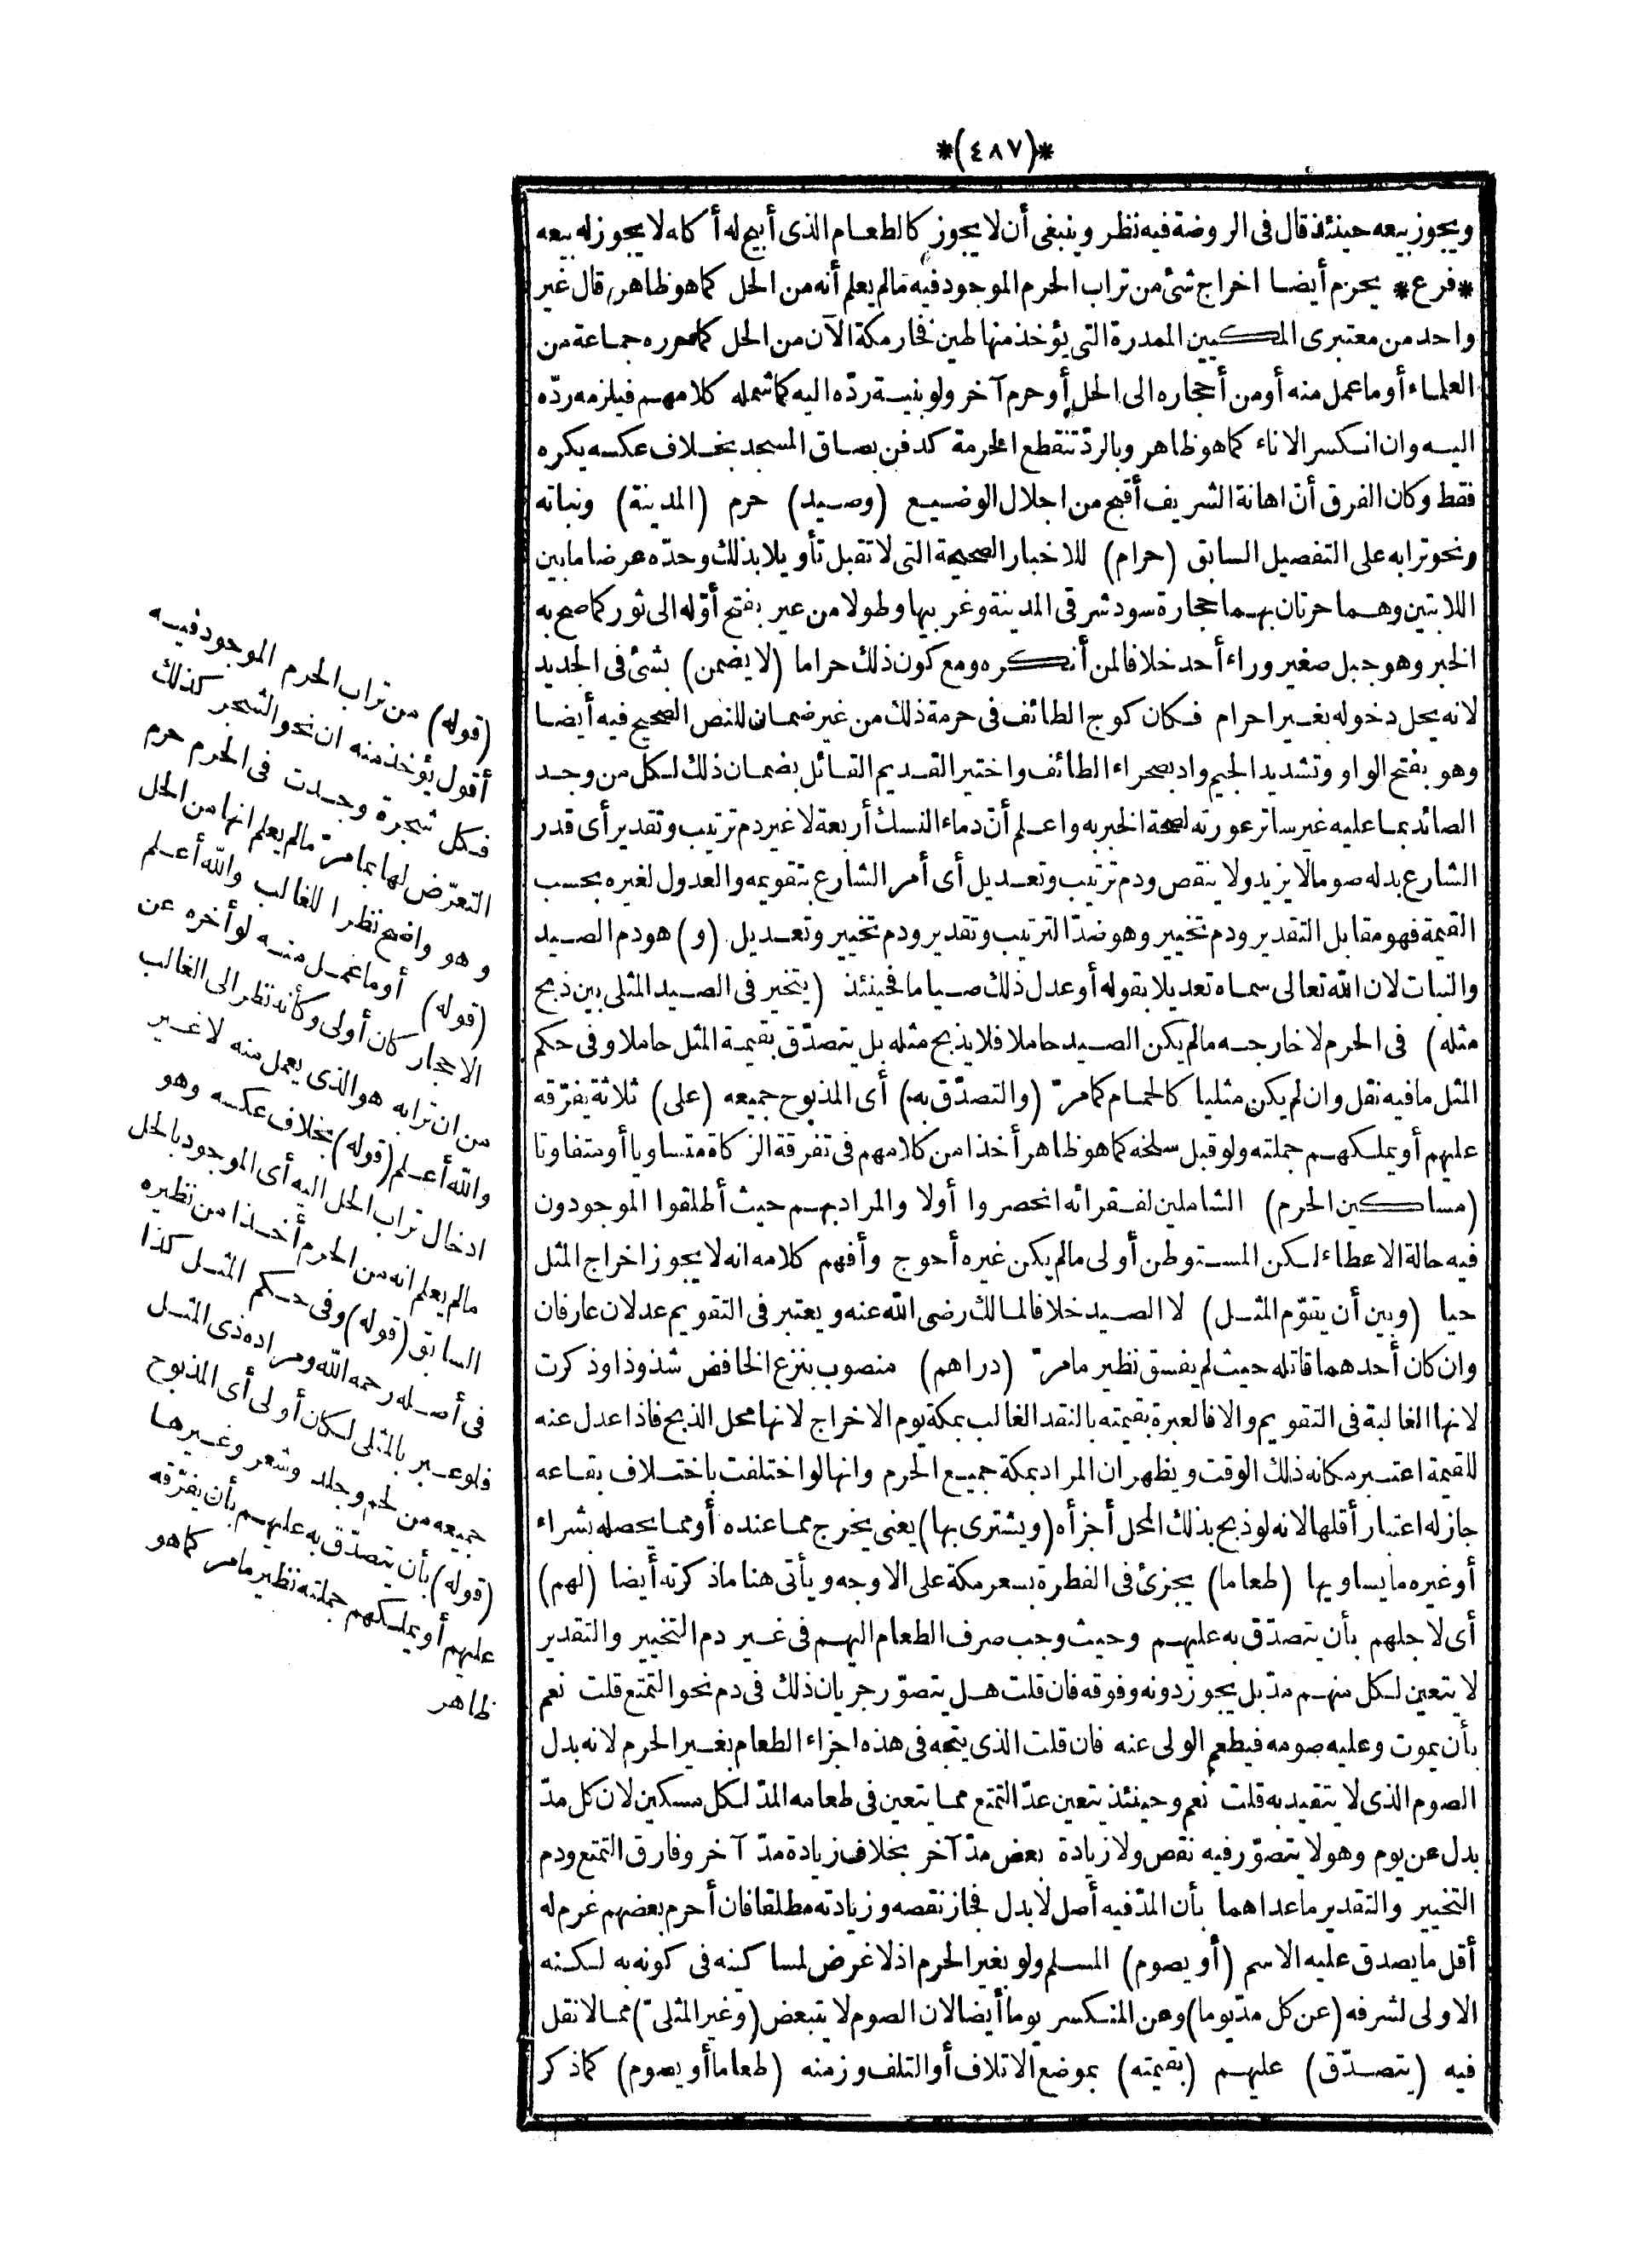 *(٤٨٧)*
ويجوز بيعه حينئذ قال فى الروضة فيه نظر وينبغى أن لا يجوز كالطعام الذى أبيح له أكله لا يجوز له بيعه
*فرع* يحرم أيضا اخراج شئ من تراب الحرم الموجود فيه ما لم يعلم أنه من الحل كما هو ظاهر قال غير
واحد من معتبرى المكيين الممدرة التى يؤخذ منها طين فخار مكة الآن من الحل كما حرره جماعة من
العلماء أو ما عمل منه أو من أحجاره الى الحل أو حرم آخر ولو بنية ردّه اليه كما شمله كلامهم فيلزمه ردّه
اليه وان انكسر الاناء كما هو ظاهر وبالردّ تنقطع الحرمة كدفن بصاق المسجد بخلاف عكسه يكره
فقط وكان الفرق أنّ اهانة الشريف أقبح من اجلال الوضيع (وصيد) حرم (المدينة) ونباته
ونحو ترابه على التفصيل السابق (حرام) للاخبار الصحيحة التى لا تقبل تأويلا بذلك وحدّه عرضا ما بين
اللابتين وهما حرتان بهما حجارة سود شرقى المدينة وغربيها وطولا من عير بفتح أوّله الى ثور كما صح به
الخبر وهو جبل صغير وراء أحد خلافا لمن أنكره ومع كون ذلك حراما (لا يضمن) بشئ فى الجديد
لانه يحل دخوله بغير احرام فكان كوج الطائف فى حرمة ذلك من غير ضمان للنص الصحيح فيه أيضا
وهو بفتح الواو وتشديد الجيم واد بصحراء الطائف واختير القديم القائل بضمان ذلك لكل من وجد
الصائد بما عليه غير ساتر عورته لصحة الخبر به واعلم أنّ دماء النسك أربعة لا غير دم ترتيب وتقدير أى قدر
الشارع بدله صوما لا يزيد ولا ينقص ودم ترتيب وتعديل أى أمر الشارع بتقويمه والعدول لغيره بحسب
القيمة فهو مقابل التقدير ودم تخيير وهو ضدّ الترتيب وتقدير ودم تخيير وتعديل (و) هو دم الصيد
والنبات لان الله تعالى سماه تعديلا بقوله أو عدل ذلك صياما فحينئذ (يتخير فى الصيد المثلى بين ذبح
مثله) فى الحرم لا خارجه ما لم يكن الصيد حاملا فلا يذبح مثله بل يتصدّق بقيمة المثل حاملا وفى حكم
المثل ما فيه نقل وان لم يكن مثليا كالحمام كما مرّ (والتصدّق به) أى المذبوح جميعه (على) ثلاثة يفرّقه
عليهم أو يملكهم جملته ولو قبل سلخه كما هو ظاهر أخذا من كلامهم فى تفرقة الزكاة متساويا أو متفاوتا
(مساكين الحرم) الشاملين لفقرائه انحصروا أولا والمراد بهم حيث أطلقوا الموجودون
فيه حالة الاعطاء لكن المستوطن أولى ما لم يكن غيره أحوج وأفهم كلامه انه لا يجوز اخراج المثل
حيا (وبين أن يقوّم المثل) لا الصيد خلافا لمالك رضى الله عنه ويعتبر فى التقويم عدلان عارفان
وان كان أحدهما قاتله حيث لم يفسق نظير ما مرّ (دراهم) منصوب بنزع الخافض شذوذا وذكرت
لانها الغالبة فى التقويم والا فالعبرة بقيمته بالنقد الغالب بمكة يوم الاخراج لانها محل الذبح فاذا عدل عنه
للقيمة اعتبر مكانه ذلك الوقت ويظهر ان المراد بمكة جميع الحرم وانها لو اختلفت باختلاف بقاعه
جاز له اعتبار أقلها لانه لو ذبح بذلك المحل أجزأه (ويشترى بها) يعنى يخرج مما عنده أو مما يحصله بشراء
أو غيره ما يساويها (طعاما) يجزئ فى الفطرة بسعر مكة على الاوجه ويأتى هنا ما ذكرته أيضا (لهم)
أى لاجلهم بأن يتصدّق به عليهم وحيث وجب صرف الطعام اليهم فى غير دم التخيير والتقدير
لا يتعين لكل منهم مدّ بل يجوز دونه وفوقه فان قلت هل يتصوّر جريان ذلك فى دم نحو التمتع قلت نعم
بأن يموت وعليه صومه فيطعم الولى عنه فان قلت الذى يتجه فى هذه اجزاء الطعام بغير الحرم لانه بدل
الصوم الذى لا يتقيد به قلت نعم وحينئذ يتعين عدّ التمتع مما يتعين فى طعامه المدّ لكل مسكين لان كل مدّ
بدل عن يوم وهو لا يتصوّر فيه نقص ولا زيادة بعض مدّ آخر بخلاف زيادة مدّ آخر وفارق التمتع ودم
التخيير والتقدير ما عداهما بأن المدّ فيه أصل لا بدل فجاز نقصه وزيادته مطلقا فان أحرم بعضهم غرم له
أقل ما يصدق عليه الاسم (أو يصوم) المسلم ولو بغير الحرم اذ لا غرض لمساكينه فى كونه به لكنه
الاولى لشرفه (عن كل مدّ يوما) وعن المنكسر يوما أيضا لان الصوم لا يتبعض (وغير المثلىّ) مما لا نقل
فيه (يتصدّق) عليهم (بقيمته) بموضع الاتلاف أو التلف وزمنه (طعاما أو يصوم) كما ذكر
(قوله) من تراب الحرم الموجود فيه
أقول يؤخذ منه ان نحو الشجر كذلك
فكل شجرة وجدت فى الحرم حرم
التعرّض لها بما مرّ ما لم يعلم انها من الحل
وهو واضح نظرا للغالب والله أعلم
(قوله) أو ما عمل منه لو أخره عن
الاحجار كان أولى وكأنه نظر الى الغالب
من ان ترابه هو الذى يعمل منه لا غير
والله أعلم (قوله) بخلاف عكسه وهو
ادخال تراب الحل اليه أى الموجود بالحل
ما لم يعلم انه من الحرم أخذا من نظيره
السابق (قوله) وفى حكم المثل كذا
فى أصله رحمه الله ومراده ذى المثل
فلو عبر بالمثلى لكان أولى أى المذبوح
جميعه من لحم وجلد وشعر وغيرها
(قوله) بأن يتصدّق به عليهم بأن يفرّقه
عليهم أو يملكهم جملته نظير ما مر كما هو
ظاهر